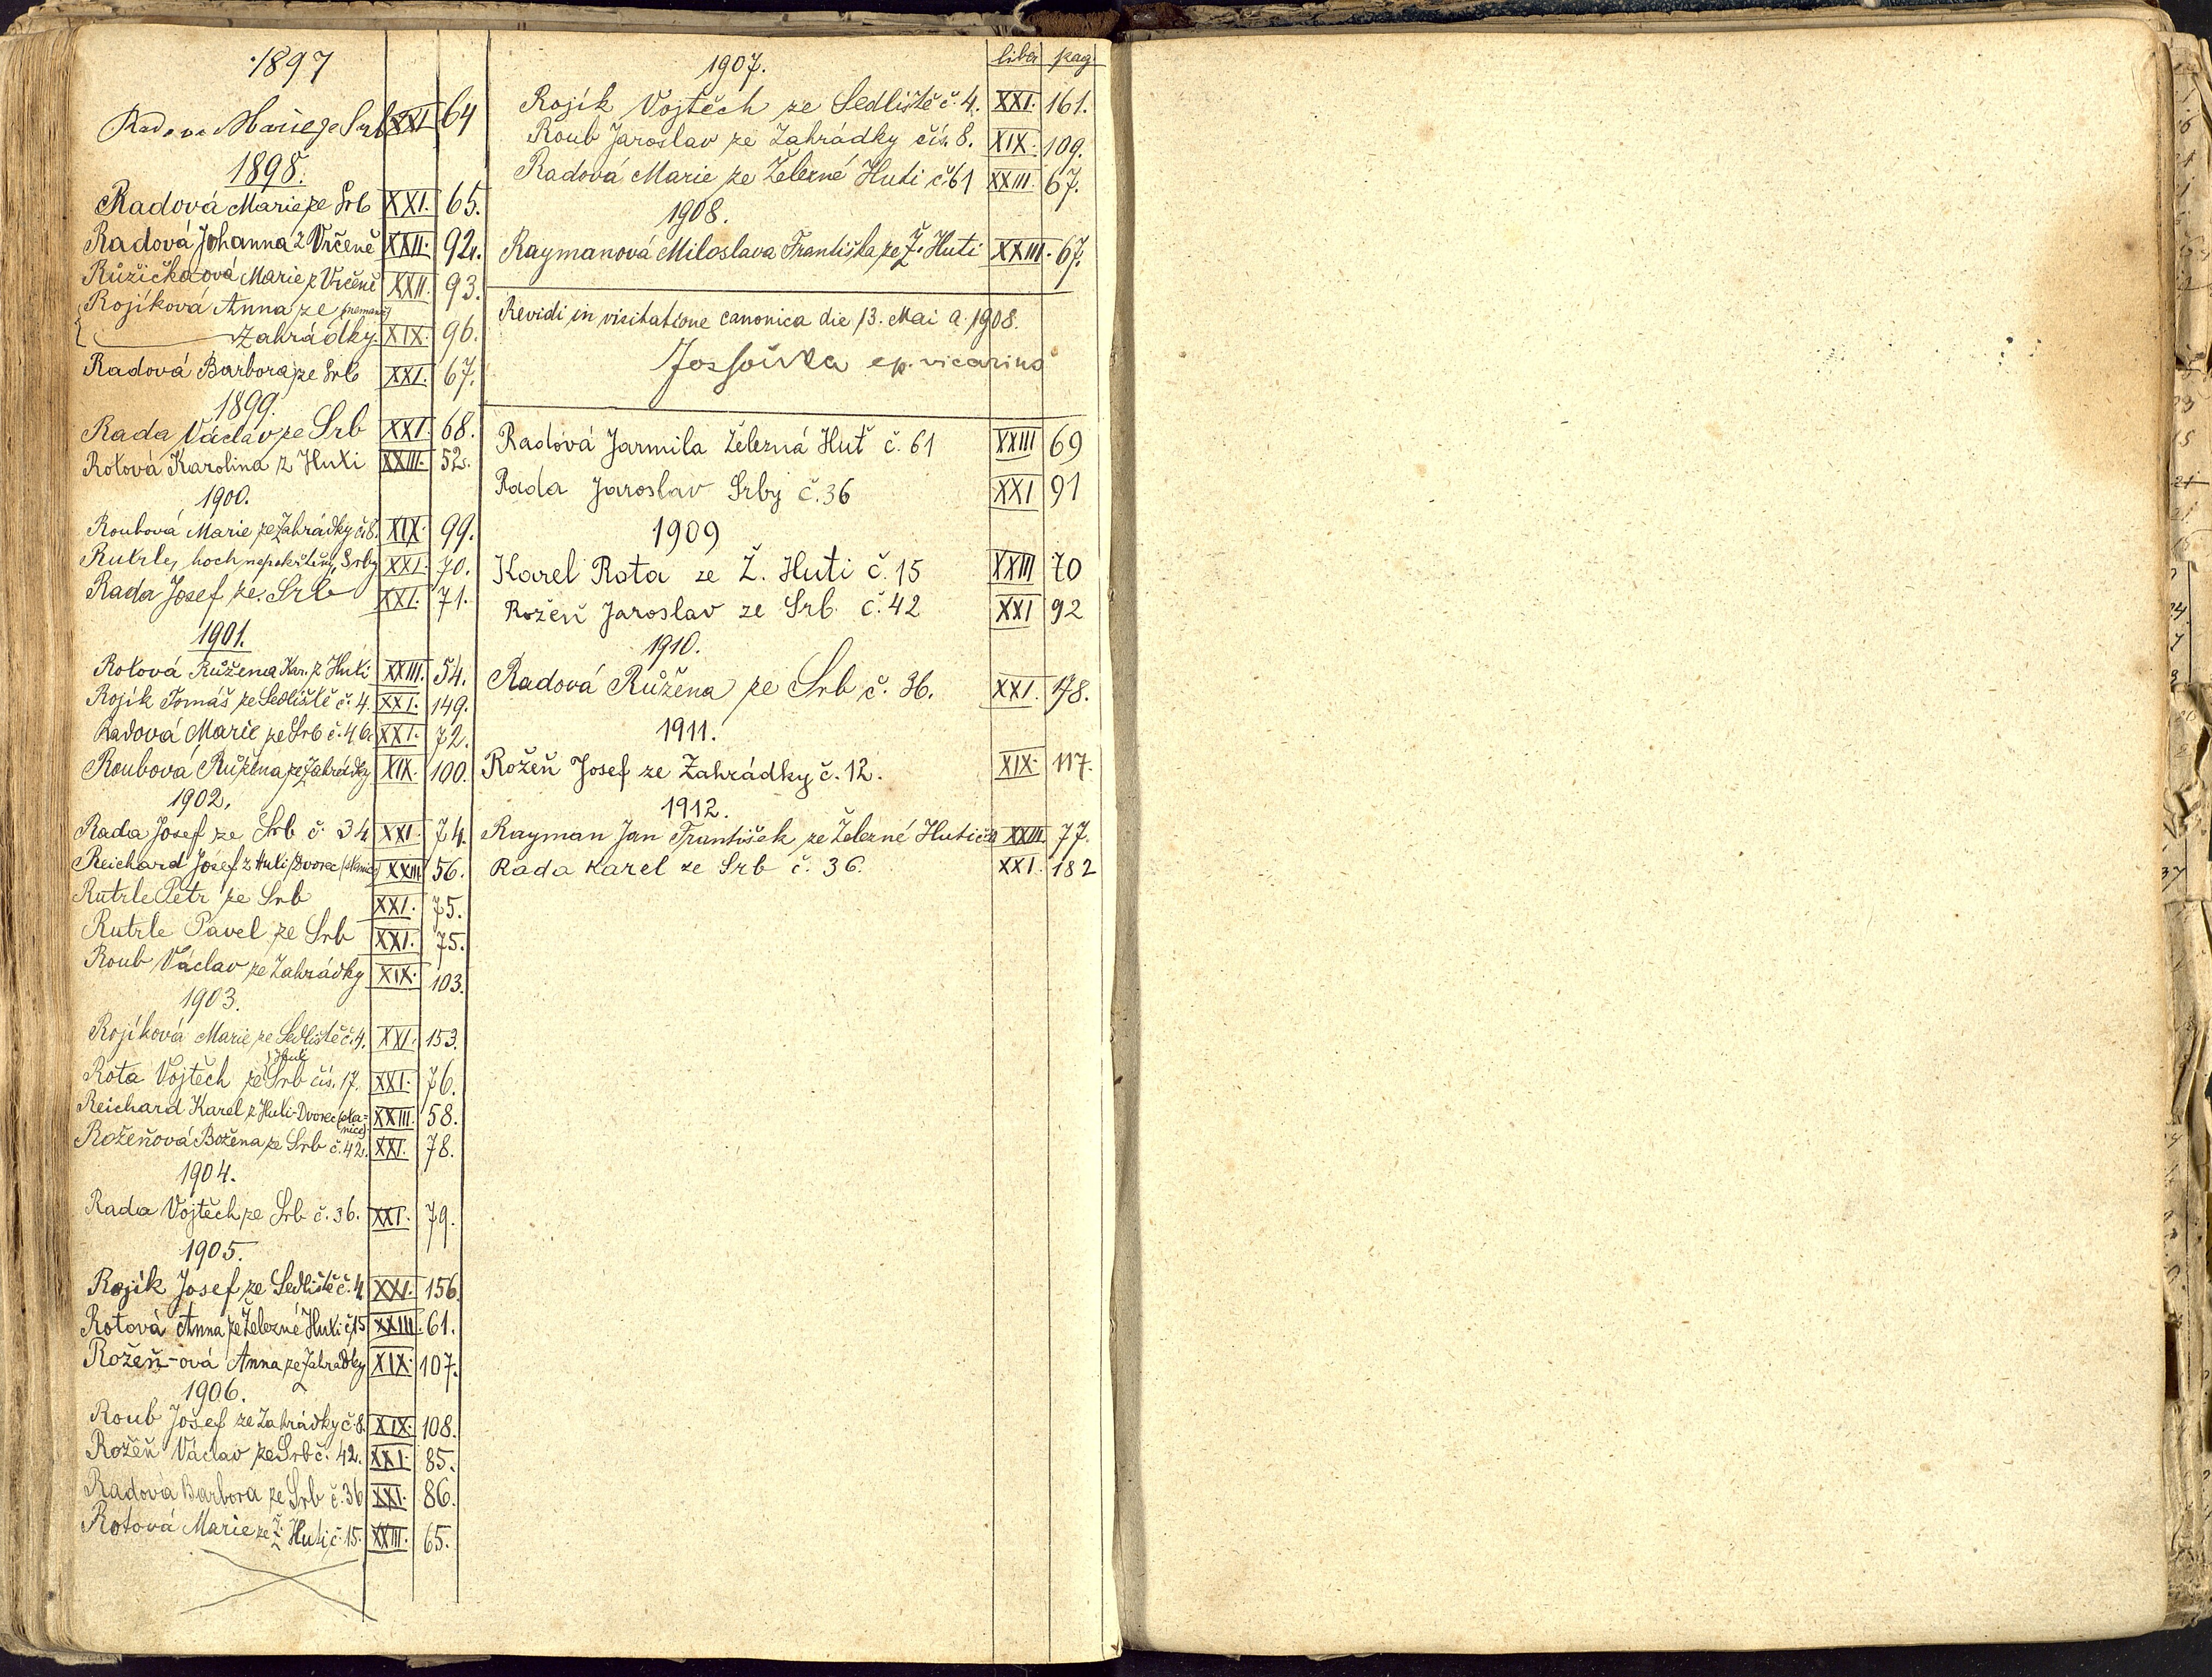 1897
Radova Marie ze Srb XXI 64
1898.
Radová Marie ze Srb XXI. 65.
Radová Johanna z Vrčeně XXII. 92.
Růžičkaová Marie z Vrčeně XXII. 93.
Rojíková Anna ze (nemanž)
Zahrádky. XIX. 96.
Radová Barbora ze Srb XXI. 67.
1899.
Rada Václav ze Srb XXI. 68.
Rotová Karolina z Huti XXIII. 52.
1900.
Roubová Marie ze Zahrádky č.8. XIX. 99.
Rutrle, hoch nepokřtěný, Srby XXI. 70.
Rada Josef ze Srb XXI. 71.
1901.
Rotová Růžena Kar. z Huti XXIII. 54.
Rojík Tomáš ze Sedliště č. 4. XXI. 149.
Radová Marie ze Srb č. 46. XXI. 72.
Roubová Růžena ze Zahrádky XIX. 100.
1902.
Rada Josef ze Srb č. 34 XXI. 74.
Reichard Josef z Huti /Dvorec XXIII. 56.
Rutrle Petr ze Srb XXI. 75.
Rutrle Pavel ze Srb XXI. 75.
Roub Václav ze Zahrádky XIX. 103.
1903.
Rojíková Marie ze Sedliště č. 4. XXI. 153.
Rota Vojtěch ze Srb čís. 17. XXI. 76.
Reichard Karel z Huti-Dvorec XXIII. 58.
Rožeňová Božena ze Srb č. 42. XXI. 78.
1904.
Rada Vojtěch ze Srb č. 36. XXI. 79.
1905.
Rojík Josef ze Sedliště č. 4 XXI. 156.
Rotová Anna ze Železné Huti č. 15 XXIII. 61.
Rožeň-ová Anna ze Zahradky XIX. 107.
1906.
Roub Josef ze Zahrádky č. 8. XIX. 108.
Rožeň Václav ze Srb č. 42. XXI. 85.
Radová Barbora ze Srb č. 36 XXI. 86.
Rotová Marie ze Ž. Huti č. 15. XXIII. 65.
1907. liber pag
Rojík Vojtěch ze Sedliště č. 4. XXI. 161.
Roub Jaroslav ze Zahrádky čís. 8. XIX. 109.
Radová Marie ze Železné Huti č. 61 XXIII. 67.
1908.
Raymanová Miloslava Františka ze Ž. Huti XXIII. 67.
Revidi in visitatione canonica die 13. Mai a. 1908.
ep. vicarius
Radová Jarmila Železná Huť č. 61 XXIII 69
Rada Jaroslav Srby č. 36 XXI 91
1909
Karel Rota ze Ž. Huti č. 15 XXIII 70
Rožeň Jaroslav ze Srb č. 42 XXI 92
1910.
Radová Růžena ze Srb č. 36. XXI. 178.
1911.
Rožeň Josef ze Zahrádky č. 12. XIX. 117.
1912.
Rayman Jan František ze Železné Huti XXIII. 77.
Rada Karel ze Srb č. 36. XXI. 182